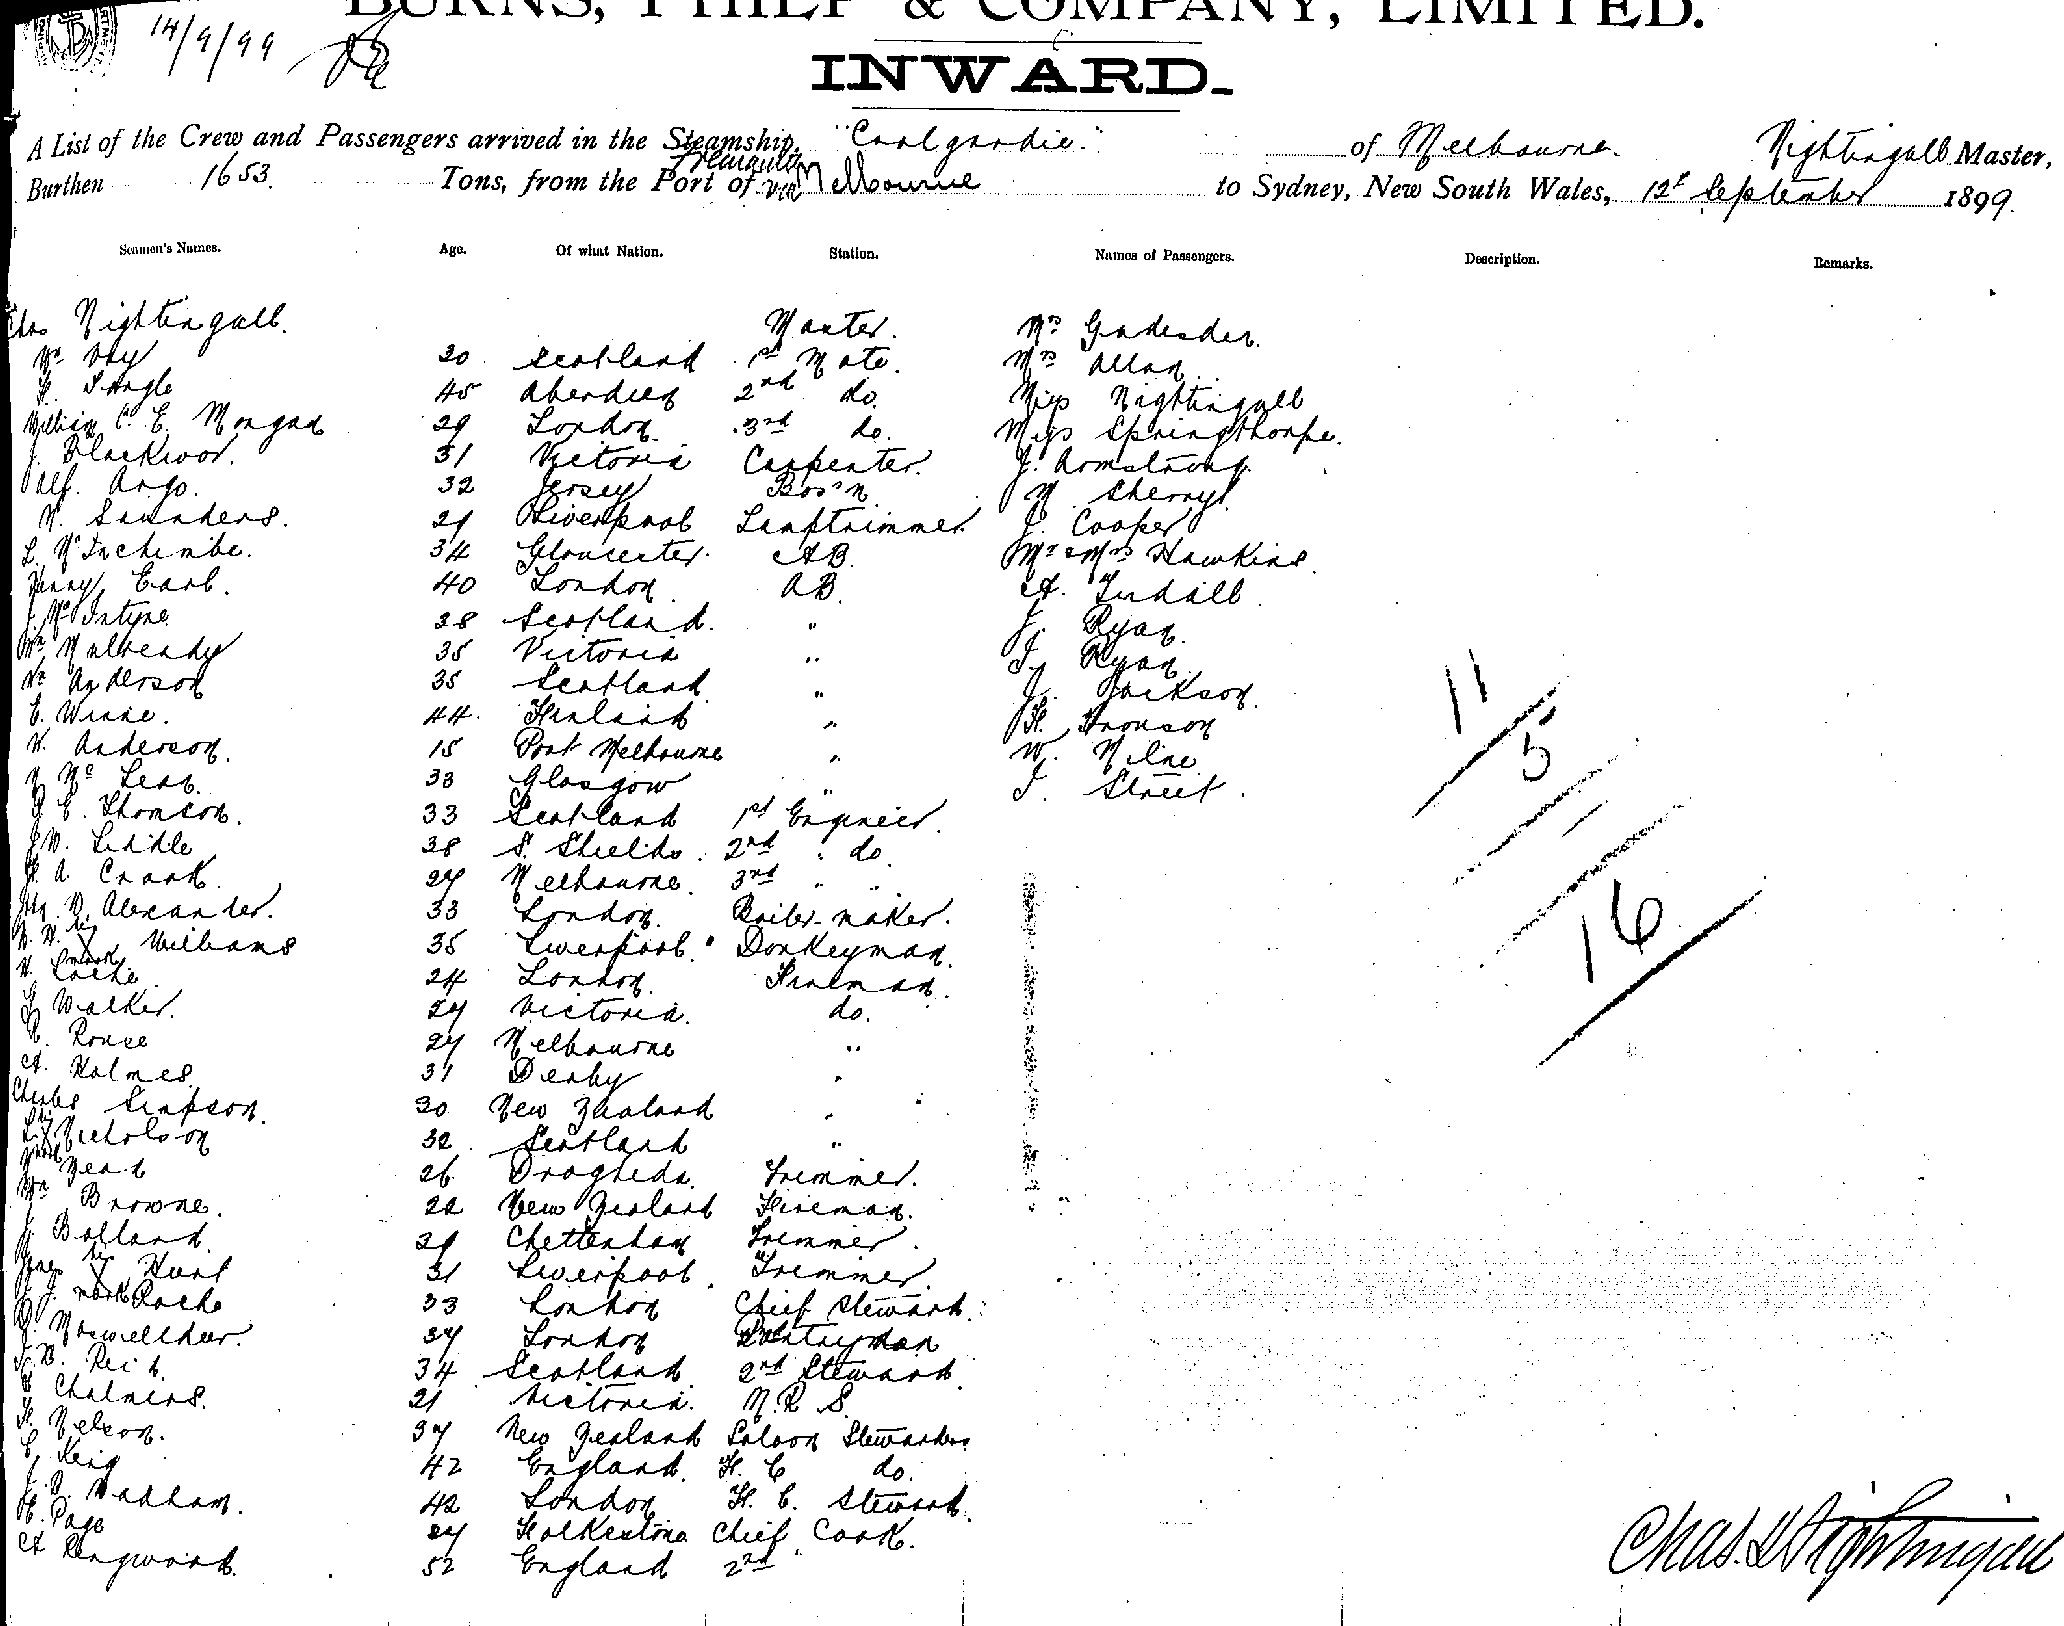 BURNS, PHILP & COMPANY, LIMITED.
14/9/99
INWARD.
A List of the Crew and Passengers arrived in the Steamship, "Coolgardie." of Melbourne. Nightingall Master,
Burthen 1653. Tons, from the Port of Fremantle via Melbourne to Sydney, New South Wales, 12th September 1899.
Seamen's Names. Age. Of what Nation. Station. Names of Passengers. Description. Remarks.
Chas Nightingall. Master. Mrs
Wm 30 Scotland 1st Mate. Mrs Allan
45 Aberdeen 2nd do. Miss Nightingall
William C. E. Morgan 29 London 3rd do. Miss Springthorpe.
J. 31 Victoria Carpenter. J. Armstrong.
Alf. Argo. 32 Jersey Bos'n M. Sherry
W. Saunders. 29 Liverpool Lamptrimmer J. Cooper
L. 34 Gloucester. AB. Mr & Mrs Hawkins.
Henry Earl. 40 London AB. A. Tindall
J. McIntyre 28 Scotland. " J. Ryan.
Wm Mulready 35 Victoria " J. Ryan
Wm Anderson 35 Scotland " J. Jackson.
E. 44 Finland " H. Aronson
W. Anderson. 15 Port Melbourne " W. Milne
McLean. 33 Glasgow " J. Street.
E. Thomson. 33 Scotland 1st Engineer.
J. W. Liddle 38 S. Shields. 2nd " do.
A. Crook. 27 Melbourne. 3rd " "
W. Alexander. 33 London. Boiler-maker.
Williams 35 Liverpool. Donkeyman.
mark
W. Roche 24 London. Fireman.
Walker. 27 Victoria. do.
R. Rouse 27 Melbourne "
A. Holmes. 31 Derby "
Charles Simpson. 30 New Zealand "
Nicholson 32 Scotland "
mark
26 Drogheda. Trimmer.
Wm Browne. 22 New Zealand Fireman.
J. Bolland. 29 Cheltenham Trimmer.
James Hunt 31 Liverpool. Trimmer.
mark
J. Roche 33 London Chief Steward.
37 London Pantryman
W. Reid. 34 Scotland 2nd Steward.
Chalmers. 21 Victoria. M.R.S.
H. Nelson. 37 New Zealand Saloon Stewardess
E. King 42 England. F. C do.
J. Wadham. 42 London F. C. Steward.
H. Page 27 Folkestone Chief Cook.
A Ringwood. 52 England 2nd "
11
5
16
Chas. Nightingall